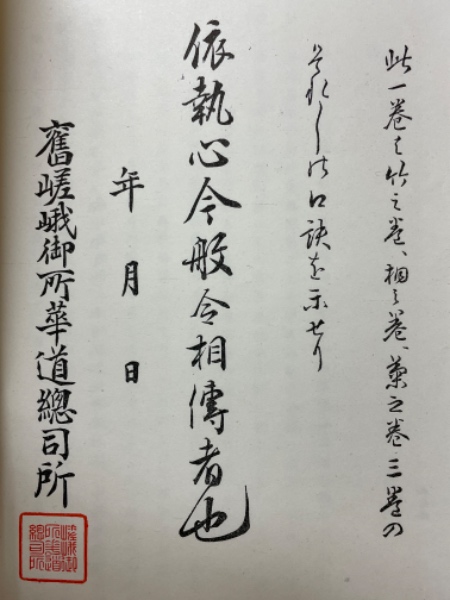 此一巻は竹之巻、之巻、之巻三巻の
それ〳〵の口訣を示せり
依執心今般令相傳者也
年 月 日
舊嵯峨御所華道總司所
嵯峨御
所華道
總司所